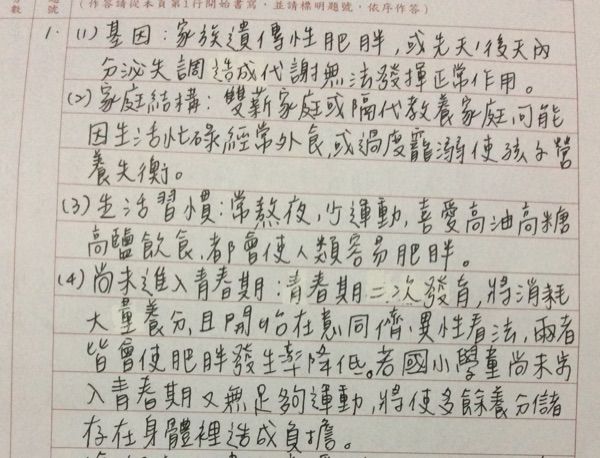 數 號 (作答請從本頁第1行開始書寫，並請標明題號，依序作答)
1. (1) 基因：家族遺傳性肥胖，或先天、後天內
分泌失調造成代謝無法發揮正常作用。
(2) 家庭結構：雙薪家庭或隔代教養家庭，可能
因生活忙碌經常外食，或過度寵溺使孩子營
養失衡。
(3) 生活習慣：常熬夜，少運動，喜愛高油高糖
高鹽飲食，都會使人類容易肥胖。
(4) 尚未進入青春期：青春期二次發育，將消耗
大量養分，且開始在意同儕、異性看法，兩者
皆會使肥胖發生率降低。若國小學童尚未步
入青春期又無足夠運動，將使多餘養分儲
存在身體裡造成負擔。